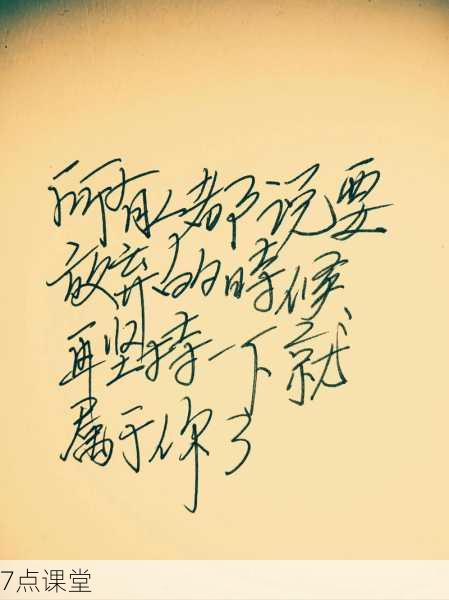 所有人都说要
放弃的時候
再坚持一下就
属于你了
7点课堂